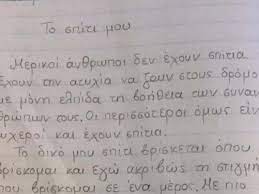 Το σπίτι μου
Μερικοί άνθρωποι δεν έχουν σπίτια
έχουν την ατυχία να ζουν στους δρόμο
με μόνη ελπίδα τη βοήθεια των συναν
θρώπων τους. Οι περισσότεροι όμως είν
τυχεροί και έχουν σπίτια.
Το δικό μου σπίτι βρίσκεται όπου
βρίσκομαι και εγώ ακριβώς τη στιγμή
που βρίσκομαι σε ένα μέρος. Με πιο